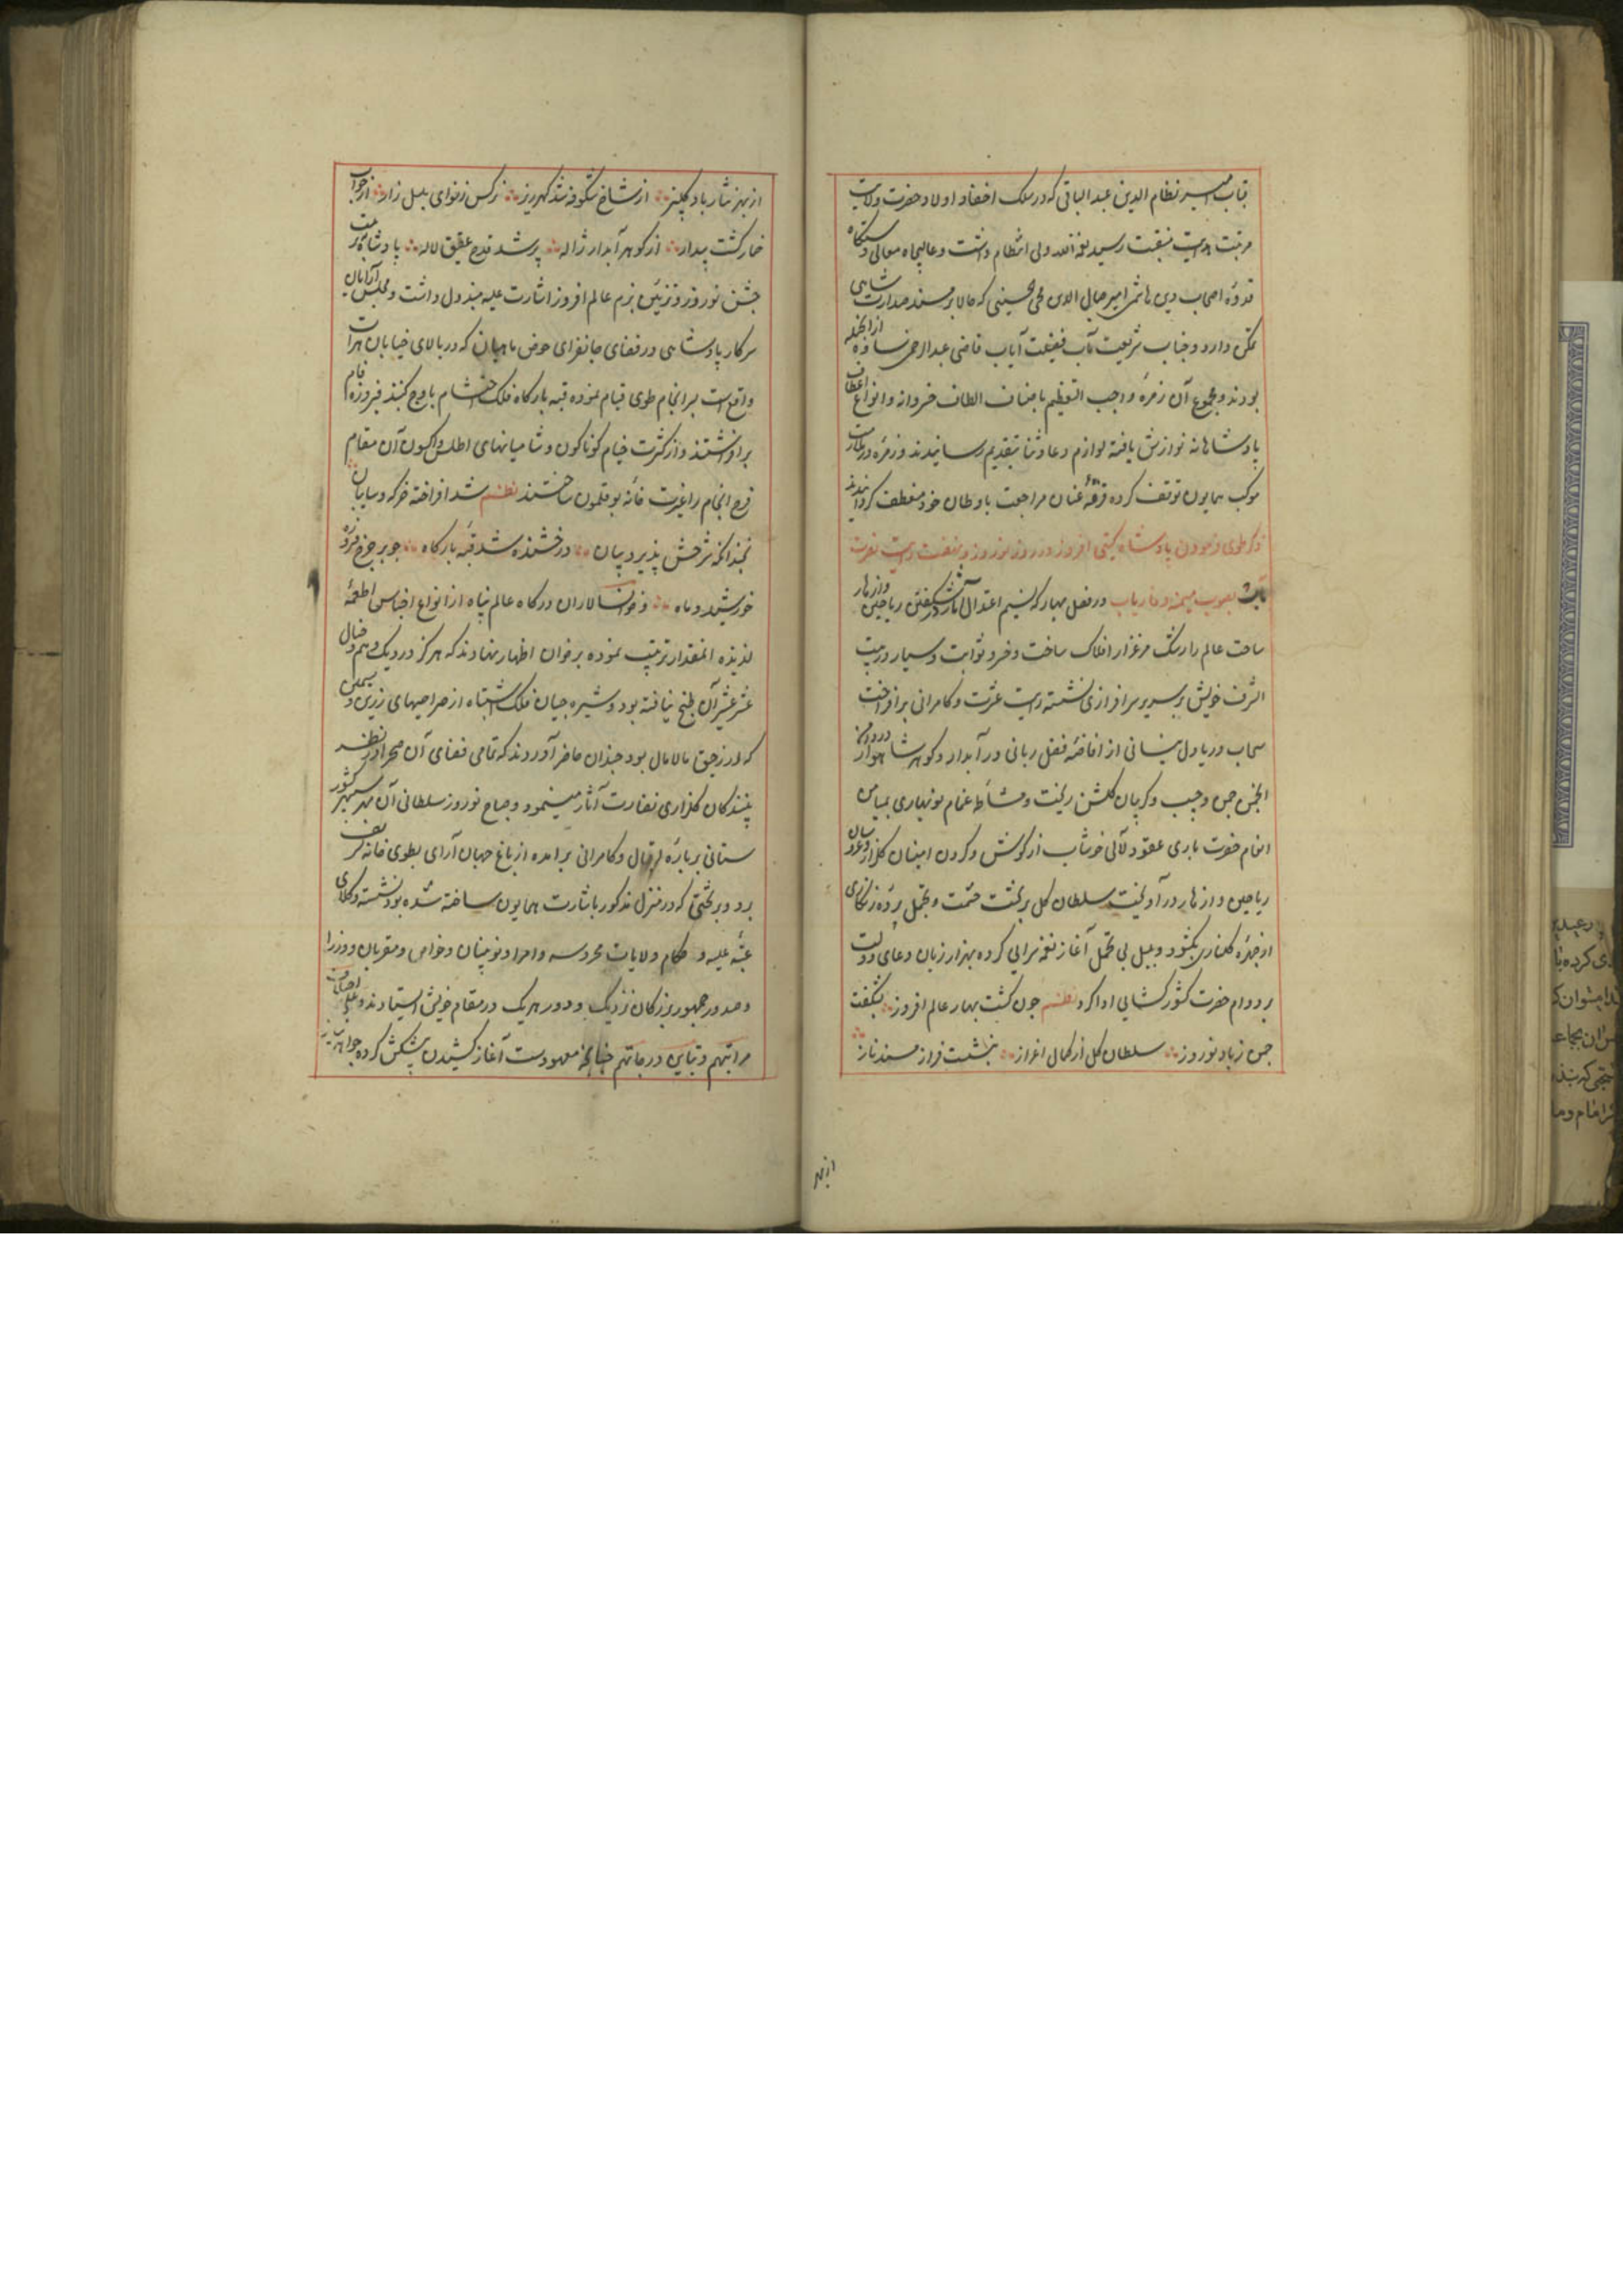 جناب میر نظام الدین عبد الباقی که در سلک احفاد اولاد حضرت ولایت
مرتبت هدایت منقبت سید نعمة الله ولی انتظام داشت و عالیجاه معالی دستگاه
قدوه اصحاب دین هاشمی امیر جمال الدین محمد الحسینی که حالا بر مسند صدارت شاهی
تمکن دارد و جناب شریعت مآب فضیلت آیاب قاضی عبد الرحمن ساوه از آنجمله
بودند و مجموع آن زمره واجب التعظیم باصناف الطاف خسروانه و انواع اعطاف
پادشاهانه نوازش یافته لوازم دعا و ثنا بتقدیم رسانیدند و زمره در ملازمت
موکب همایون توقف کرده فرقه عنان مراجعت باوطان خود منعطف گردانیدند
ذکر طوی فرمودن پادشاه گیتی افروز در روز نوروز و نهضت رایت نصرت
بصوب میمنه و فاریاب در فصل بهار که نسیم اعتدال آثار شکفتن ریاحین و ازهار
ساحت عالم را رشک مرغزار افلاک ساخت و خسرو ثوابت و سیار در بیت
الشرف خویش بر سریر سرافرازی نشسته رایت عزت و کامرانی برافراخت
سحاب دریا دل نیسانی از افاضه فضل ربانی در آبدار و گوهر شاهوار در دامن
انجمن چمن و جیب و گریبان گلشن ریخت و مشاطه غمام نوبهاری بمیامن
انعام حضرت باری عقود لآلی خوشاب از گوش و گردن امینان گلزار و عروسان
ریاحین و ازهار در آویخت سلطان گل بر تخت حشمت و تجمل پرده زنگاری
از چهره گلناری بگشود و بلبل بی تحمل آغاز نغمه سرایی کرده بهزار زبان دعای دولت
بر دوام حضرت کشورگشایی ادا کرد نظم چون گشت بهار عالم افروز بشکفت
چمن ز باد نوروز سلطان گل از کمال اعزاز بنشست فراز مسند ناز
از بهر
از بهر نثار باد گلبیز از شاخ شکوفه شد گهرریز نرگس ز نوای بلبل زار از خواب
خمار گشت بیدار از گوهر آبدار ژاله پر شد قدح عقیق لاله پادشاه
جشن نوروز و تزئین بزم عالم افروز اشارت علیه مبذول داشت و مجلس آرایان
سرکار پادشاهی در فضای جانفزای حوض ماهیان که در بالای خیابان هرات
واقع است سرانجام طوی قیام نموده قبه بارگاه فلک احتشام باوج گنبد فیروزه فام
برافراشتند و از کثرت خیام گوناگون و شامیانهای اطلس و اکسون آن مقام
فرح انجام را غیرت خانه بوقلمون ساختند نظم شد افراخته خرگه و سایبان
نچندانکه شرحش پذیرد بیان درخشنده شد قبه بارگاه چو بر چرخ فیروزه
خورشید و ماه و خوانسالاران درگاه عالم پناه از انواع اجناس اطعمه
لذیذه آنمقدار ترتیب نموده بر خوان اظهار نهادند که هرگز در دیگ وهم و خیال
عشر عشیر آن طبخ نیافته بود و شیره چیان فلک اشتباه از صراحیهای زرین و سیمین
که از رحیق مالامال بود چندان حاضر آوردند که تمامی فضای آن صحرا در نظر
بینندگان گلزاری نضارت آثار مینمود و صباح نوروز سلطانی آن مهر سپهر کشور
ستانی بر باره اقبال و کامرانی برآمده از باغ جهان آرای بطوی خانه تشریف
برد و بر تختی که در منزل مذکور باشارت همایون ساخته شده بود نشسته وکلای
عتبه علیه و حکام ولایات محروسه و امرا و نوئینان و خواص و مقربان و وزرا
و صدور جمهور بزرگان نزدیک و دور هر یک در مقام خویش ایستادند و علی اختلاف
مراتبهم و تباین درجاتهم چنانچه معهودست آغاز کشیدن پیشکش کرده جواهر